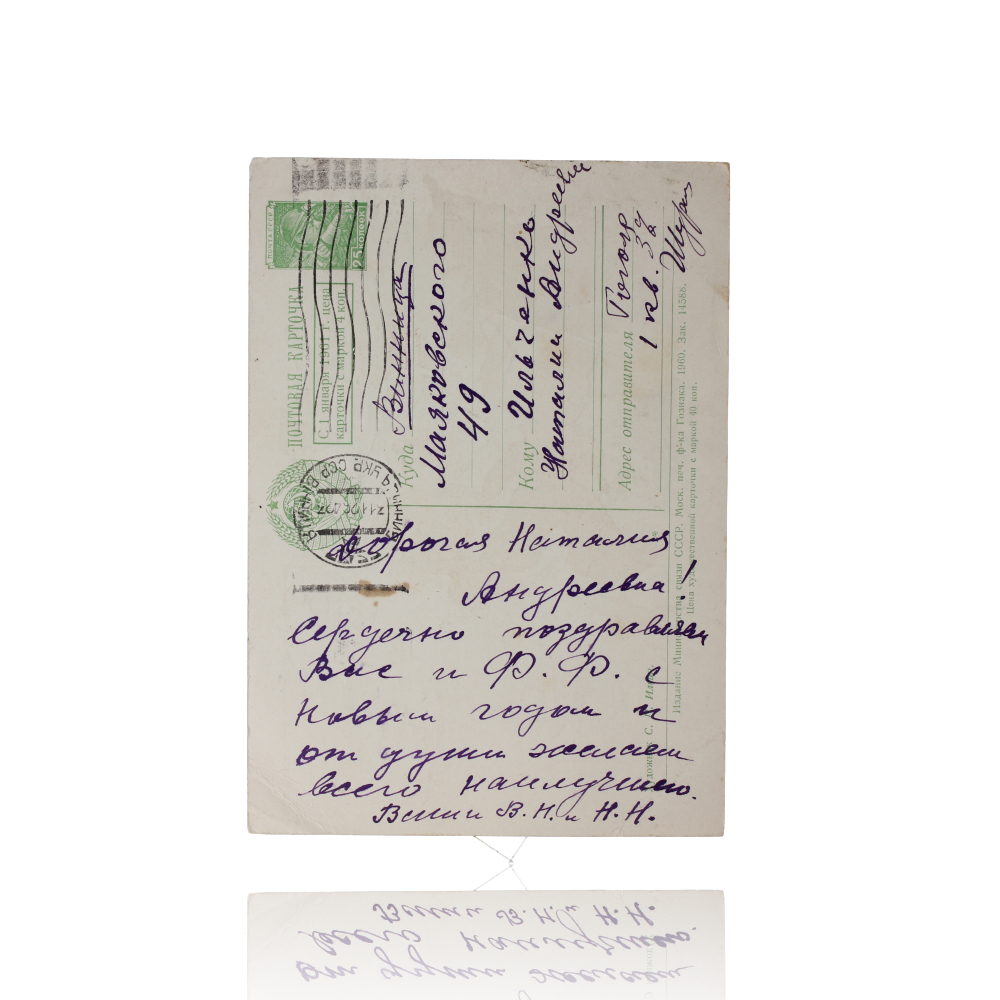 ПОЧТА СССР
25 копеек
ПОЧТОВАЯ КАРТОЧКА
С 1 января 1961 г. цена
карточки с маркой 4 коп.
Куда
Винница
Маяковского
49
Кому Ильченко
Наталии Андреевне
Адрес отправителя Гоголя
1 кв. 32
УКР. ССР
Дорогая Наталия
Андреевна!
Сердечно поздравляем
Вас и Ф. Ф. с
Новым годом и
от души желаем
всего наилучшего.
В. Н. и Н. Н.
Издание Министерства связи СССР. Моск. печ. ф-ка Гознака. 1960. Зак. 14588.
Цена художественной карточки с маркой 40 коп.